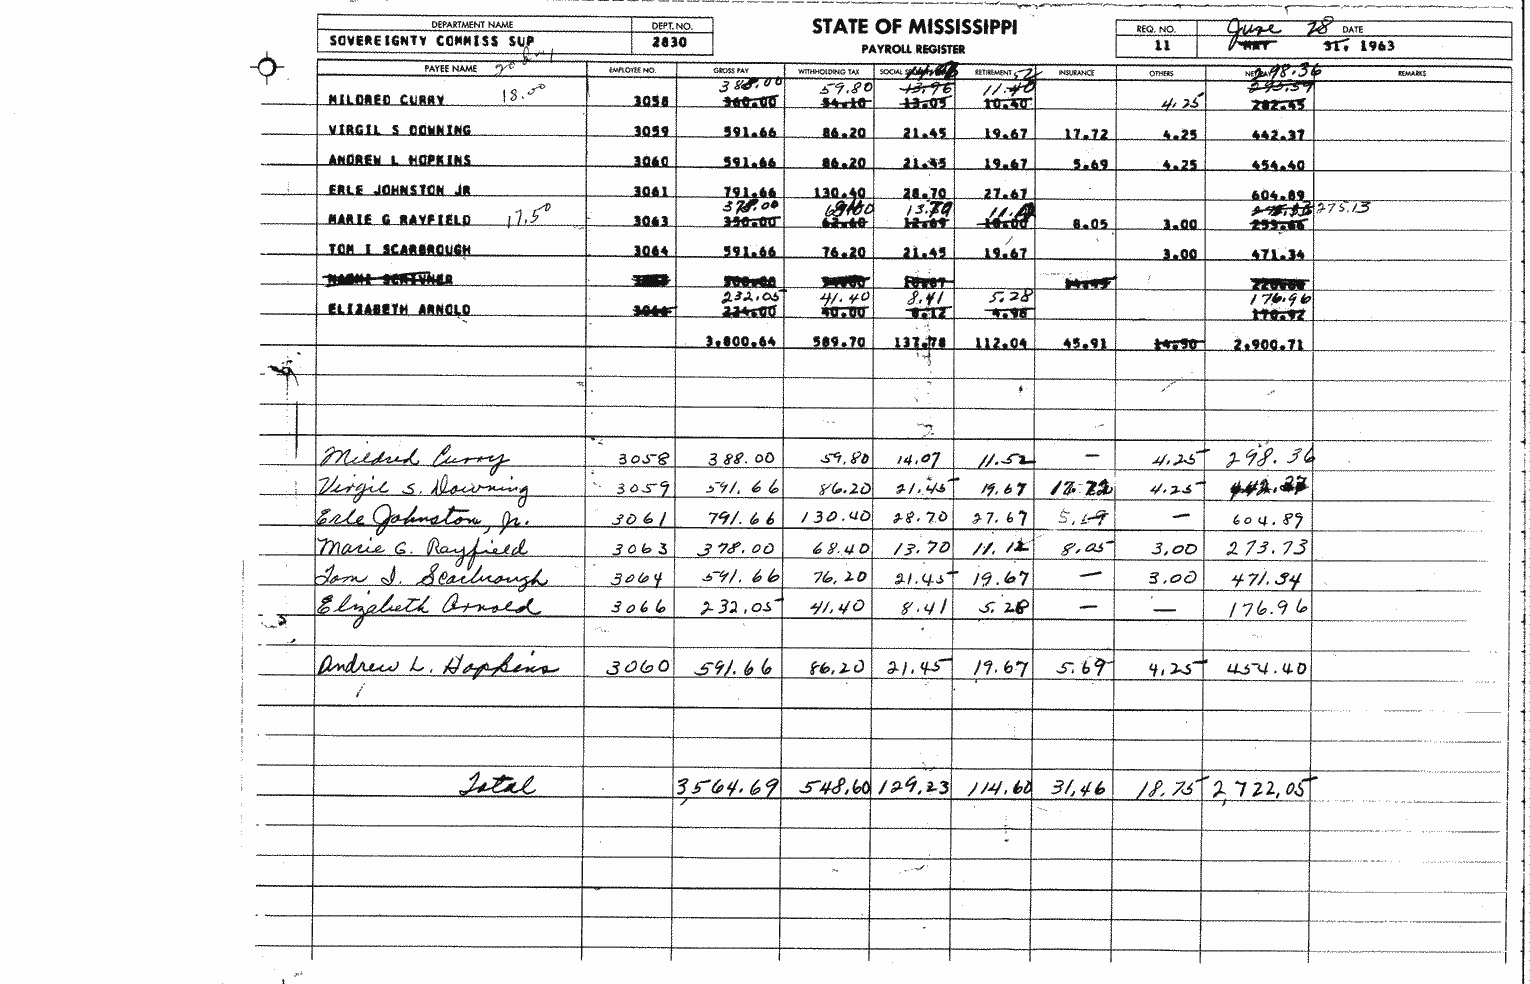 DEPARTMENT NAME DEPT. NO. STATE OF MISSISSIPPI REQ. NO. June 28 DATE
SOVEREIGNTY COMMISS SUP 2830 PAYROLL REGISTER 11 MAY 31, 1963
PAYEE NAME EMPLOYEE NO. GROSS PAY WITHHOLDING TAX SOCIAL RETIREMENT INSURANCE OTHERS REMARKS
18.00 388.00 59.80 13.96 11.52 298.36
MILDRED CURRY 3058 360.00 54.10 13.05 10.40 4.25 282.45
VIRGIL S DOWNING 3059 591.66 86.20 21.45 19.67 17.72 4.25 442.37
ANDREW L HOPKINS 3060 591.66 86.20 21.45 19.67 5.69 4.25 454.40
ERLE JOHNSTON JR 3061 791.66 130.40 28.70 27.67 604.89
17.50 378.00 13.70 275.13
MARIE G RAYFIELD 3063 350.00 62.60 12.69 10.00 8.05 3.00
TOM I SCARBROUGH 3064 591.66 76.20 21.45 19.67 3.00 471.34
NAOMI SCRIVNER
232.05 41.40 8.41 5.28 176.96
ELIZABETH ARNOLD 3066 224.00 40.00 8.12 4.96 170.92
3,800.64 589.70 137.78 112.04 45.91 14.50 2,900.71
Mildred Curry 3058 388.00 59.80 14.07 11.52 — 4.25 298.36
Virgil S. Downing 3059 591.66 86.20 21.45 19.67 17.72 4.25 442.37
Erle Johnston, Jr. 3061 791.66 130.40 28.70 27.67 — 604.89
Marie G. Rayfield 3063 378.00 68.40 13.70 11.12 8.05 3.00 273.73
Tom I. Scarbrough 3064 591.66 76.20 21.45 19.67 — 3.00 471.34
Elizabeth Arnold 3066 232.05 41.40 8.41 5.28 — — 176.96
Andrew L. Hopkins 3060 591.66 86.20 21.45 19.67 5.69 4.25 454.40
Total 3,564.69 548.60 129.23 114.60 31.46 18.75 2,722.05